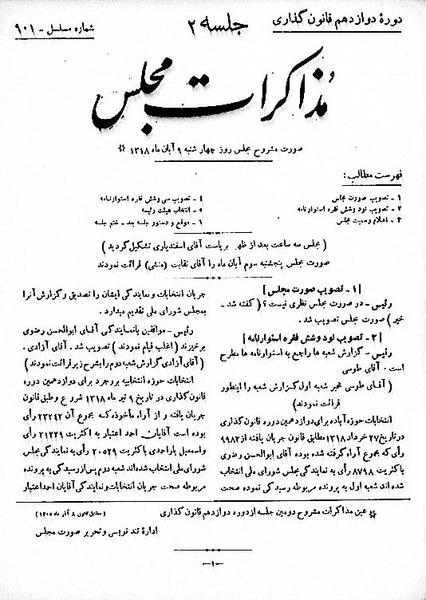 دورهٔ دوازدهم قانون گذاری
جلسه ۲
شماره مسلسل - ۹۰۱
مذاکرات مجلس
صورت مشروح مجلس روز چهارشنبه ۹ آبان ماه ۱۳۱۸
فهرست مطالب:
۱ - تصویب صورت مجلس
۲ - تصویب نود وشش فقره استوارنامه
۳ - اعلام رسمیت مجلس
۴ - تصویب سی وشش فقره استوارنامه
۵ - انتخاب هیئت رئیسه
۶ - موقع و دستور جلسه بعد - ختم جلسه
( مجلس سه ساعت بعد از ظهر بریاست آقای اسفندیاری تشکیل گردید )
صورت مجلس پنجشنبه سوم آبان ماه را آقای نقابت (منشی) قرائت نمودند
[ ۱ - تصویب صورت مجلس ]
رئیس - در صورت مجلس نظری نیست؟ ( گفته شد -
خیر ) صورت مجلس تصویب شد.
[ ۲ - تصویب نود وشش فقره استوارنامه ]
رئیس - گزارش شعبه ها راجع به استوارنامه ها مطرح
است . آقای طوسی
( آقای طوسی مخبر شعبه اول گزارش شعبه را اینطور
قرائت نمودند )
انتخابات حوزه آباده برای دوازدهمین دوره قانون گذاری
در تاریخ ۲۷ خرداد ۱۳۱۸ مطابق قانون جریان یافته از ۹۹۸۲
رأی که بمجموع آراء گرفته شده بوده آقای ابوالحسن رضوی
با کثریت ۸۷۹۸ رأی به نمایندگی مجلس شورای ملی انتخاب
شده اند شعبه اول به پرونده مربوطه رسیدگی نموده صحت
جریان انتخابات و نمایندگی ایشان را تصدیق و گزارش آنرا
بمجلس شورای ملی تقدیم میدارد.
رئیس - موافقین بانمایندگی آقای ابوالحسن رضوی
برخیزند ( اغلب قیام نمودند ) تصویب شد . آقای آزادی .
( آقای آزادی گزارش شعبه دوم را بشرح زیر قرائت نمودند )
انتخابات حوزه انتخابیه بروجرد برای دوازدهمین دوره
قانون گذاری در تاریخ ۹ تیر ماه ۱۳۱۸ شروع و طبق قانون
جریان یافته و از آراء مأخوذه که بمجموع آن ۲۳۲۴۲ رأی
بوده است آقایان احد اعتبار به اکثریت ۲۱۳۲۹ رأی
واسمعیل یاراحمدی باکثریت ۲۰۵۲۹ رأی به نمایندگی مجلس
شورای ملی انتخاب شده اند شعبه دوم پس از رسیدگی به پرونده
مربوطه صحت جریان انتخابات و نمایندگی آقایان احد اعتبار
عین مذاکرات مشروح دومین جلسه از دوره دوازدهم قانون گذاری
اداره تند نویسی و تحریر صورت مجلس
- ۱ -